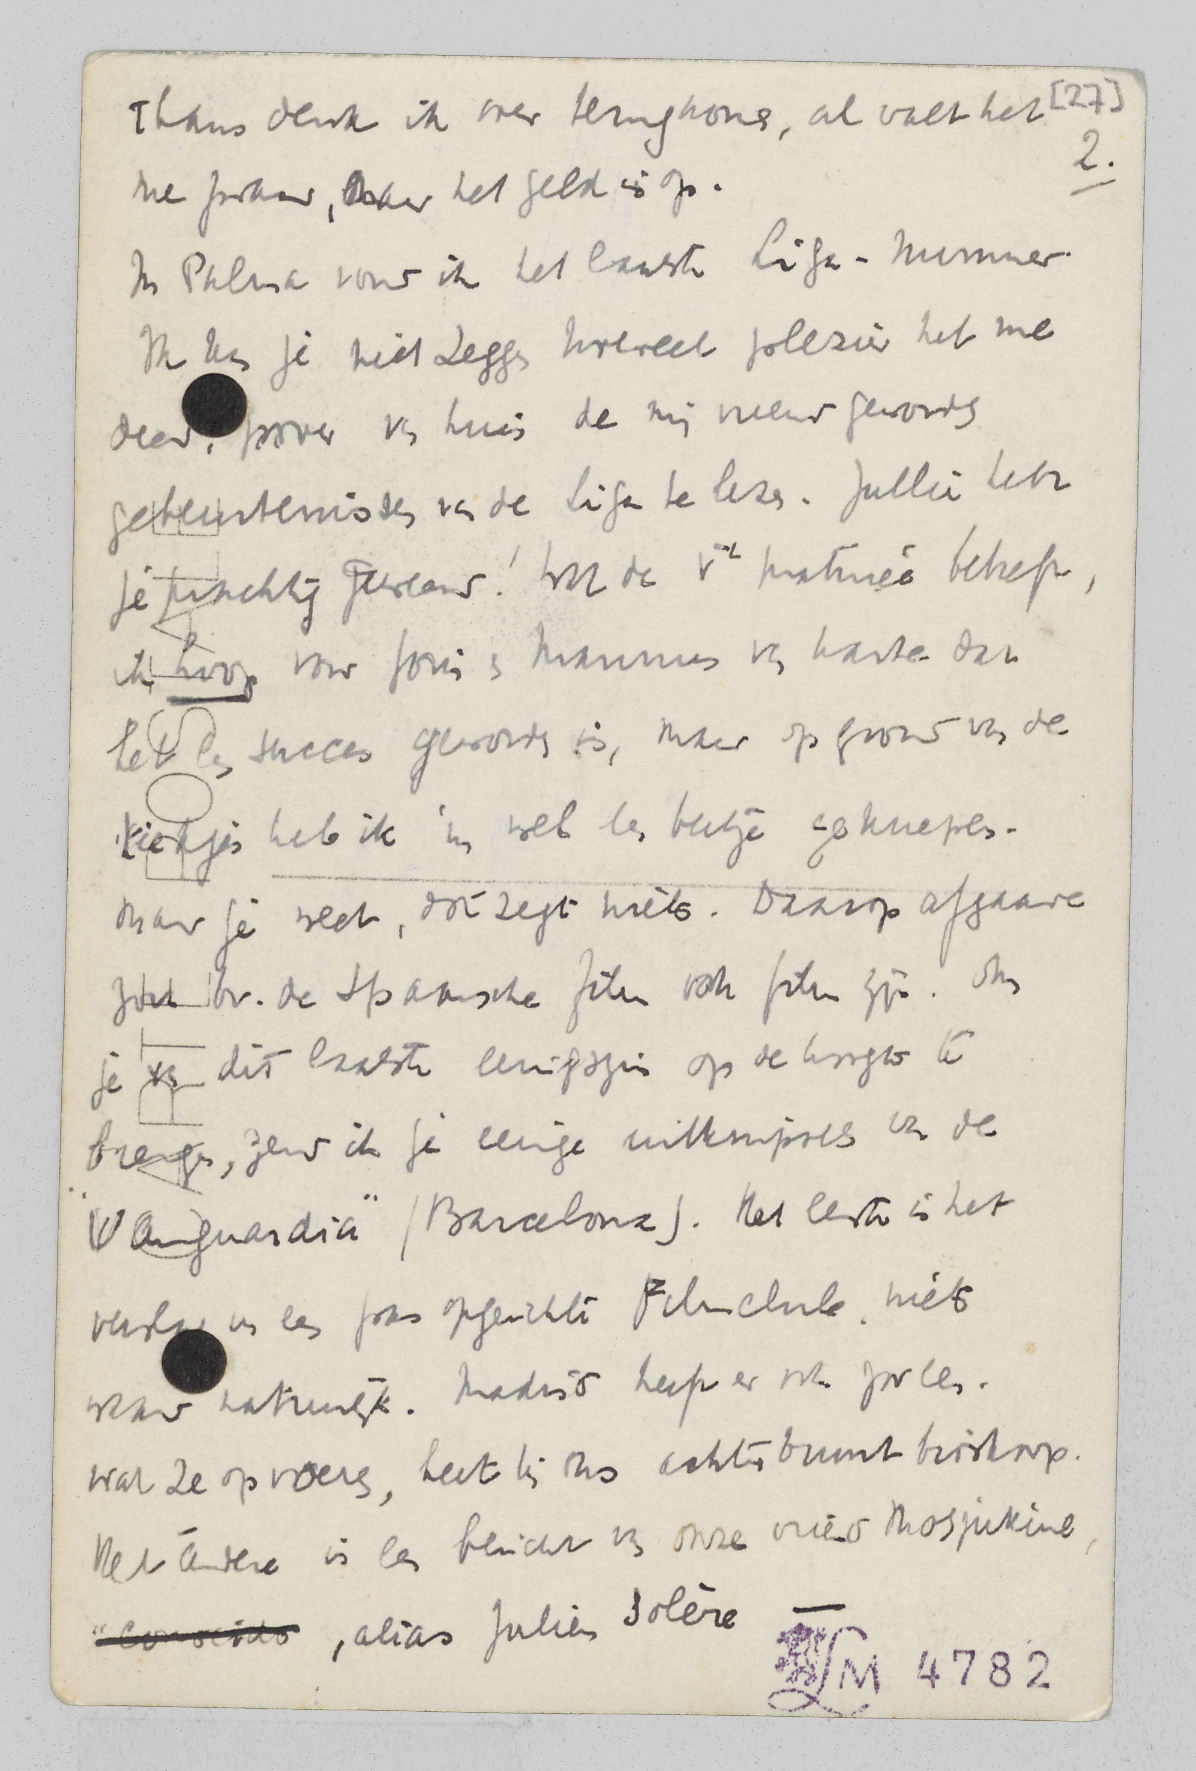 Thans denk ik over terugkomen, al valt het [27]
2.
me zwaar, maar het geld is op.
In Palma vond ik het laatste Liga-nummer.
Ik kan je niet zeggen hoeveel plezier het me
deed, zoover van huis de mij vreemd geworden
gebeurtenissen van de Liga te lezen. Jullie hebt
je prachtig geweerd! Wat de Vᵉ matinée betreft,
ik hoop voor Joris & Mannus van harte dat
het een succes geworden is, maar op grond van de
kiekjes heb ik 'm wel een beetje geknepen.
Maar je weet, dat zegt niets. Daarop afgaande
zou bv. de Spaansche film ook film zijn. Om
je van dit laatste eenigszins op de hoogte te
brengen, zend ik je eenige uitknipsels van de
"Vanguardia" (Barcelona). Het eerste is het
verslag van een pas opgerichte Filmclub, niets
waard natuurlijk. Madrid heeft er ook zoo een.
Wat ze opvoeren, heet bij ons achterbuurt bioskoop.
Het andere is een bericht van onze vriend Mosjukine,
"conocido , alias Julien Solère —
LM 4782